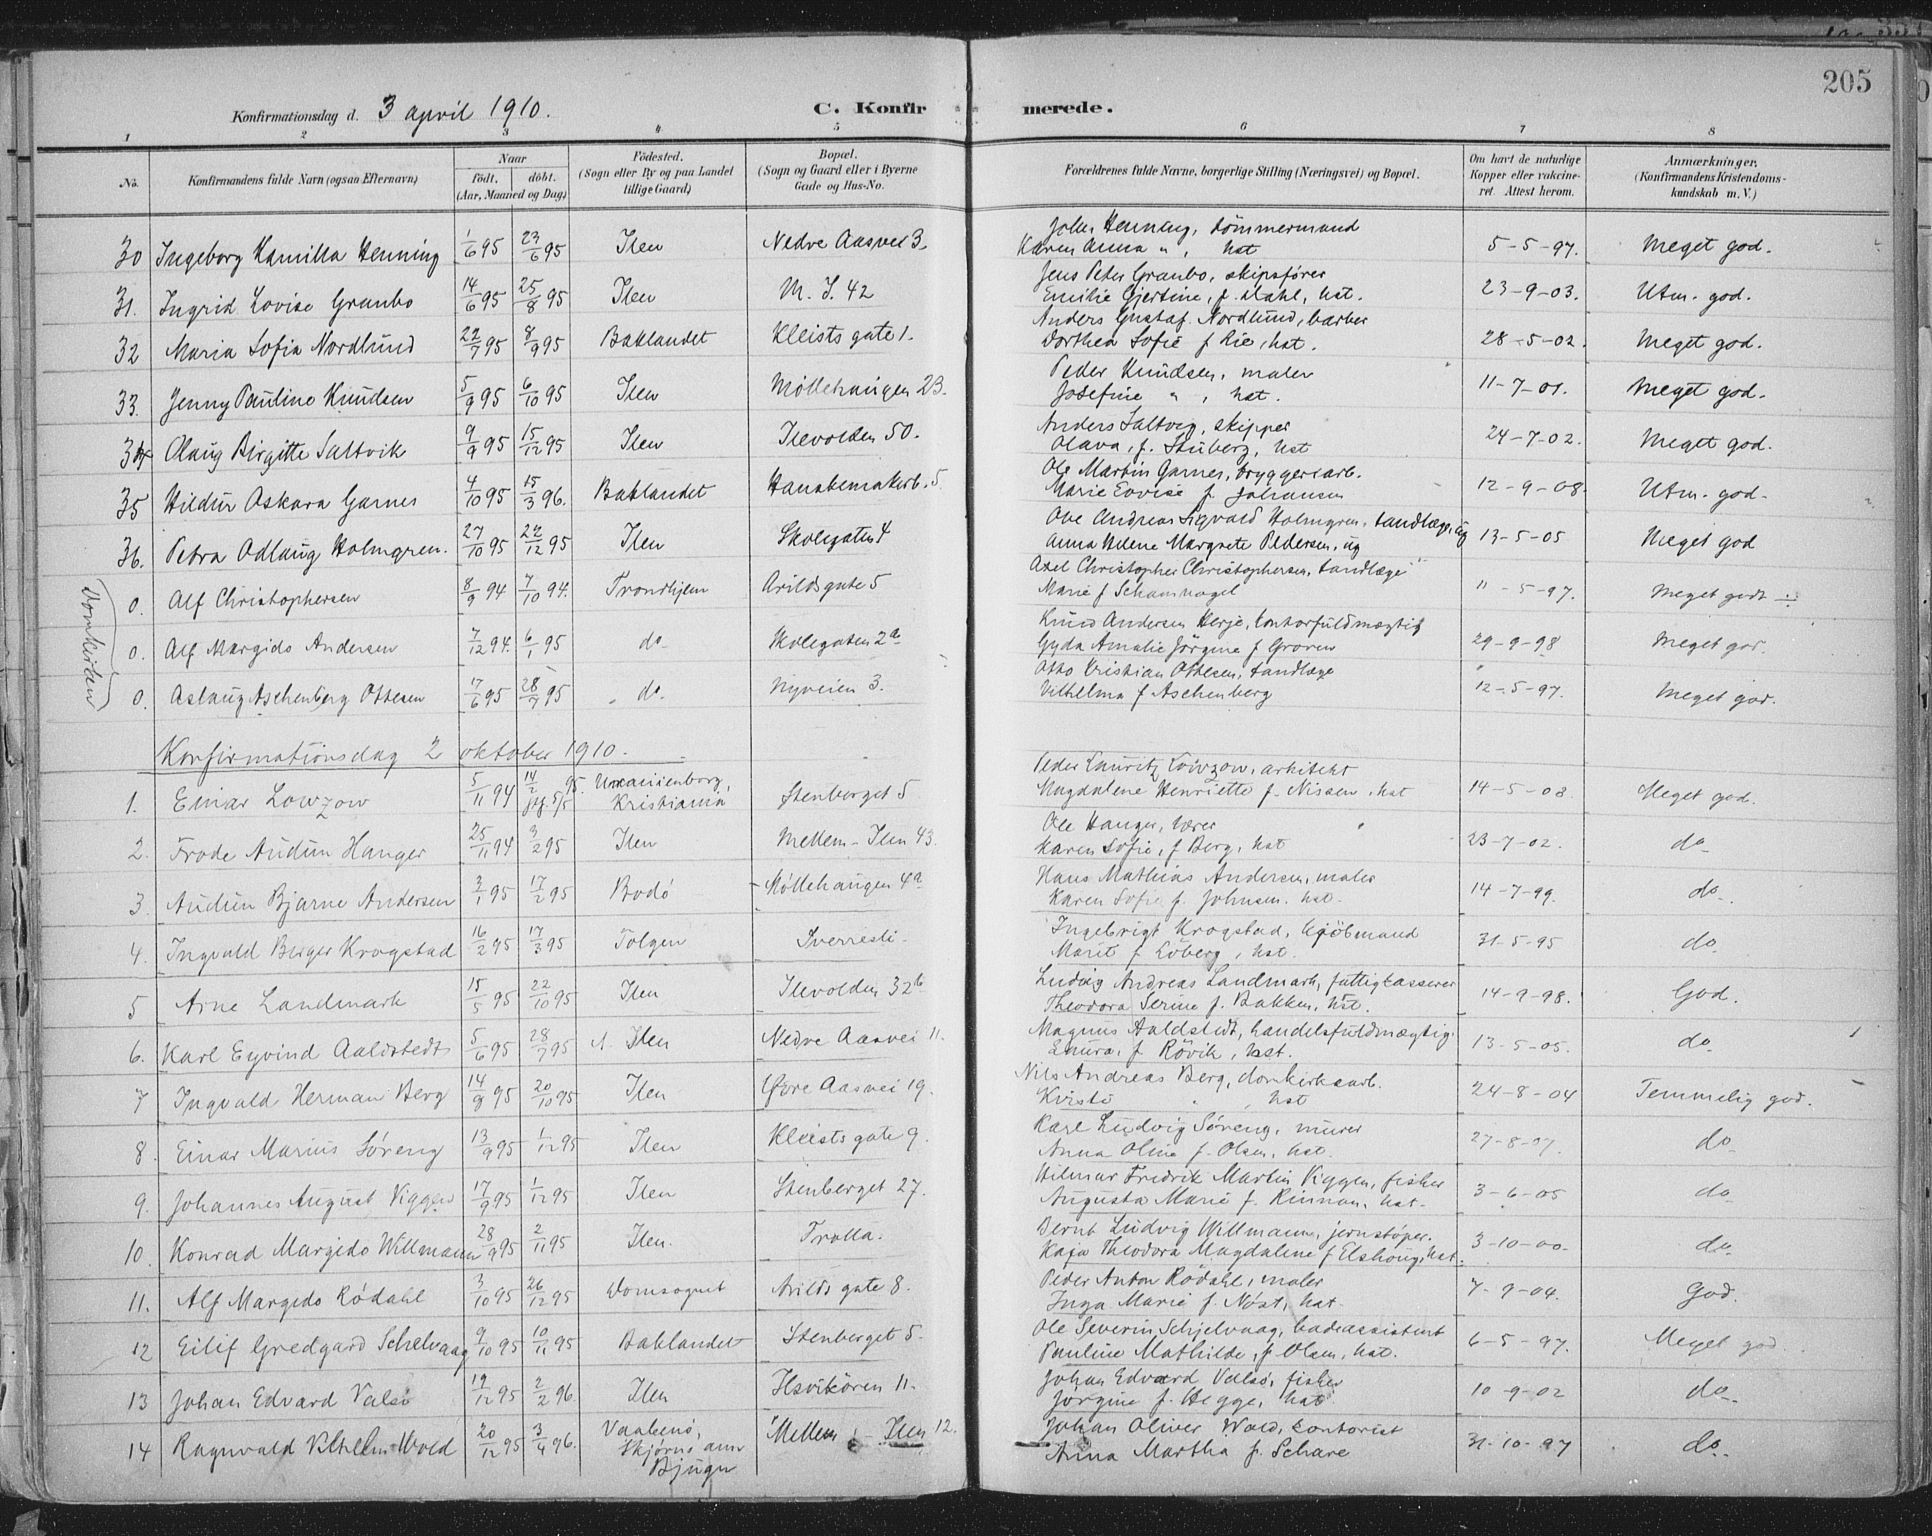 205
Konfirmationsdag d. 3 april 1910. C. Konfirmerede.
1 2 3 4 5 6 7 8
No. Konfirmandens fulde Navn (ogsaa Efternavn) Naar født. døbt. (Aar, Maaned og Dag) Födested. (Sogn eller By og paa Landet tillige Gaard) Bopæl. (Sogn og Gaard eller i Byerne Gade og Hus-No. Forældrenes fulde Navne, borgerlige Stilling (Næringsvei) og Bopæl. Om havt de naturlige Kopper eller vakcineret. Attest herom. Anmærkninger. (Konfirmandens Kristendomskundskab m. V.)
30 Ingeborg Kamilla Henning 1/6 95 23/6 95 Ilen Nedre Aasvei 3 Johs Henning, tømmermand 5-5-97. Meget god.
Karen Anna " , hst
31. Ingrid Lovise Granbo 14/6 95 25/8 95 Ilen M. I. 42 Jens Peter Granbo, skipsfører 23-9-03. Utm. god.
Emilie Gjertine, f. Dahl, hst.
32 Maria Sofia Nordlund 22/7 95 8/9 95 Baklandet Kleists gate 1. Anders Gustaf Nordlund, barber 28-5-02. Meget god.
Dorthea Sofie f Lie, hst.
33. Jenny Pauline Knudsen 5/9 95 6/10 95 Ilen Møllehaugen 23. Peder Knudsen, maler 11-7-01. Meget god.
Josefine " , hst.
34 Olaug Birgitte Saltvik 9/9 95 15/12 95 Ilen Ilevolden 50. Anders Saltvig, skipper 24-7-02. Meget god.
Olava, f. Stuberg, hst
35 Hildur Oskara Garnes 4/10 95 15/3 96. Baklandet Hanskemakerb. 5. Ole Martin Garnes, bryggeriarb. 12-9-08. Utm. god.
Marie Lovise f. Johansen
36. Petra Odlaug Holmgren. 27/10 95 22/12 95 Ilen Skolegaten 4 Ole Andreas Sigvald Holmgren, tandlæge, ug 13-5-05 Meget god
Anna Helene Margrete Pedersen, ug
Domkirken
0. Alf Christophersen 8/9 94 7/10 94. Trondhjem Arilds gate 5 Axel Christopher Christophersen, tandlæge " -5-97. Meget godt
Marie f Schamvogel
0. Alf Margido Andersen 7/12 94. 6/1 95 do Skolegaten 2a Knud Andersen Herje, kontorfuldmægtig 29-9-98 Meget god.
Gyda Amalie Jørgine f Groven
0. Aslaug Aschenberg Ottesen 17/6 95 28/7 95 do. Nyveien 3. Otto Kristian Ottesen, tandlæge 12-5-97. Meget god.
Vilhelma f Aschenberg
Konfirmationsdag 2 oktober 1910.
1. Einar Lowzow 5/11 94 14/2 95. Uranienborg, Kristiania Stenberget 5 Peder Lauritz Lowzow, arkitekt 14-5-08. Meget god.
Magdalene Henriette f. Nissen, hst
2. Frode Audun Hanger 25/11 94 3/2 95 Ilen Mellem-Ilen 43. Ole Hanger, lærer 23-7-02. do
Karen Sofie, f Berg, hst
3. Audun Bjarne Andersen 2/1 95 17/2 95 Bodø Møllehaugen 4a Hans Mathias Andersen, maler 14-7-99. do.
Karen Sofie f. Johnsen, hst.
4. Ingvald Birger Krogstad 16/2 95 17/3 95 Tolgen Sverresli. Ingebrigt Krogstad, kjøbmand 31-5-95 do
Marit f Løberg, hst.
5 Arne Landmark 15/5 95 22/10 95 Ilen Ilevolden 32b Ludvig Andreas Landmark, fattigkasserer 14-9-98. God.
Theodora Serine f. Bakken, hst.
6. Karl Eyvind Aaldstedt 5/6 95 28/7 95 Ilen Nedre Aasvei 11. Magnus Aaldstedt, handelsfuldmægtig. 13-5-05. do
Laura, f Røvik, hst.
7 Ingvald Herman Berg 14/8 95 20/10 95 Ilen Øvre Aasvei 19. Nils Andreas Berg, domkirkearb. 24-8-04 Temmelig god.
Kristi " , hst
8. Einar Marius Søreng 13/9 95 1/12 95 Ilen Kleists gate 9. Karl Ludvig Søreng, murer 27-8-07. do
Anna Oline f. Olsen, hst.
9. Johannes August Viggen 17/9 95 1/12 95 Ilen Stenberget 27. Hilmar Fredrik Martin Viggen, fisker 3-6-05 do
Augusta Marie f. Rinnan, hst.
10. Konrad Margido Willmann 28/9 95 2/11 95 Ilen. Trolla. Bernt Ludvig Willmann, jernstøper. 3-10-00. do.
Kaja Theodora Magdaline f Elshoug, hst.
11. Alf Margido Rødahl 3/10 95 26/12 95 Domsognet Arilds gate 8. Peder Anton Rødahl, maler 7-9-04. God.
Inga Marie f. Nøst, hst.
12 Eilif Gredgard Schelvaag 9/10 95 10/11 95 Baklandet Stenberget 5. Ole Severin Schjelvaag, badeassistent 6-5-97. Meget god
Pauline Mathilde, f. Olsen, hst.
13 Johan Edvard Valsø 19/12 95 2/2 96. Ilen Ilsvikøren 11. Johan Edvard Valsø, fisker 10-9-02 do.
Jørgine f. Hegge, hst
14 Ragnvald Vilhelm Wold 20/12 95 3/4 96. Vaabenö, Skjørns ann. Bjugn Mellem-Ilen 12. Johan Oliver Wold, kontorist 31-10-97 do.
Anna Martha f. Schare